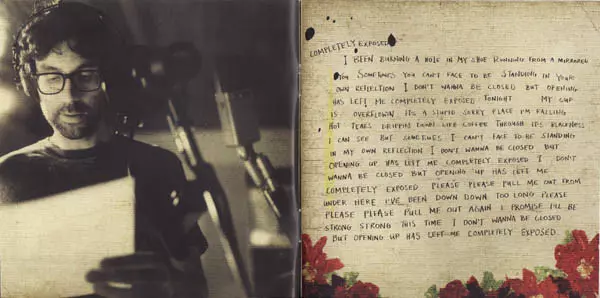 COMPLETELY EXPOSED
I BEEN BURNING A HOLE IN MY SHOE RUNNING FROM A MIRRORED
YOU SOMETIMES YOU CAN'T FACE TO BE STANDING IN YOUR
OWN REFLECTION I DON'T WANNA BE CLOSED BUT OPENING
HAS LEFT ME COMPLETELY EXPOSED TONIGHT MY CUP
IS OVERFLOWN ITS A STUPID SORRY PLACE I'M FALLING
HOT TEARS DRIPPIN DOWN LIKE COFFEE THROUGH ITS BLACKNESS
I CAN SEE BUT SOMETIMES I CAN'T FACE TO BE STANDING
IN MY OWN REFLECTION I DON'T WANNA BE CLOSED BUT
OPENING UP HAS LEFT ME COMPLETELY EXPOSED I DON'T
WANNA BE CLOSED BUT OPENING UP HAS LEFT ME
COMPLETELY EXPOSED PLEASE PLEASE PULL ME OUT FROM
UNDER HERE I'VE BEEN DOWN DOWN TOO LONG PLEASE
PLEASE PLEASE PULL ME OUT AGAIN I PROMISE I'LL BE
STRONG STRONG THIS TIME I DON'T WANNA BE CLOSED
BUT OPENING UP HAS LEFT ME COMPLETELY EXPOSED